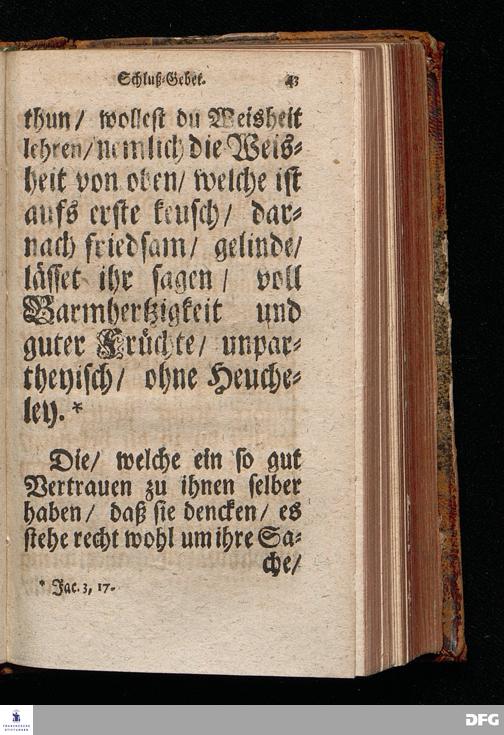 Schluß-Gebet. 43
thun/ wollest du Weisheit
lehren/ nemlich die Weis-
heit von oben/ welche ist
aufs erste keusch/ dar-
nach friedsam/ gelinde/
lässet ihr sagen/ voll
Barmhertzigkeit und
guter Früchte/ unpar-
theyisch/ ohne Heuche-
ley. *
Die/ welche ein so gut
Vertrauen zu ihnen selber
haben/ daß sie dencken/ es
stehe recht wohl um ihre Sa-
che/
* Jac. 3, 17.
FRANCKESCHE
STIFTUNGEN
DFG